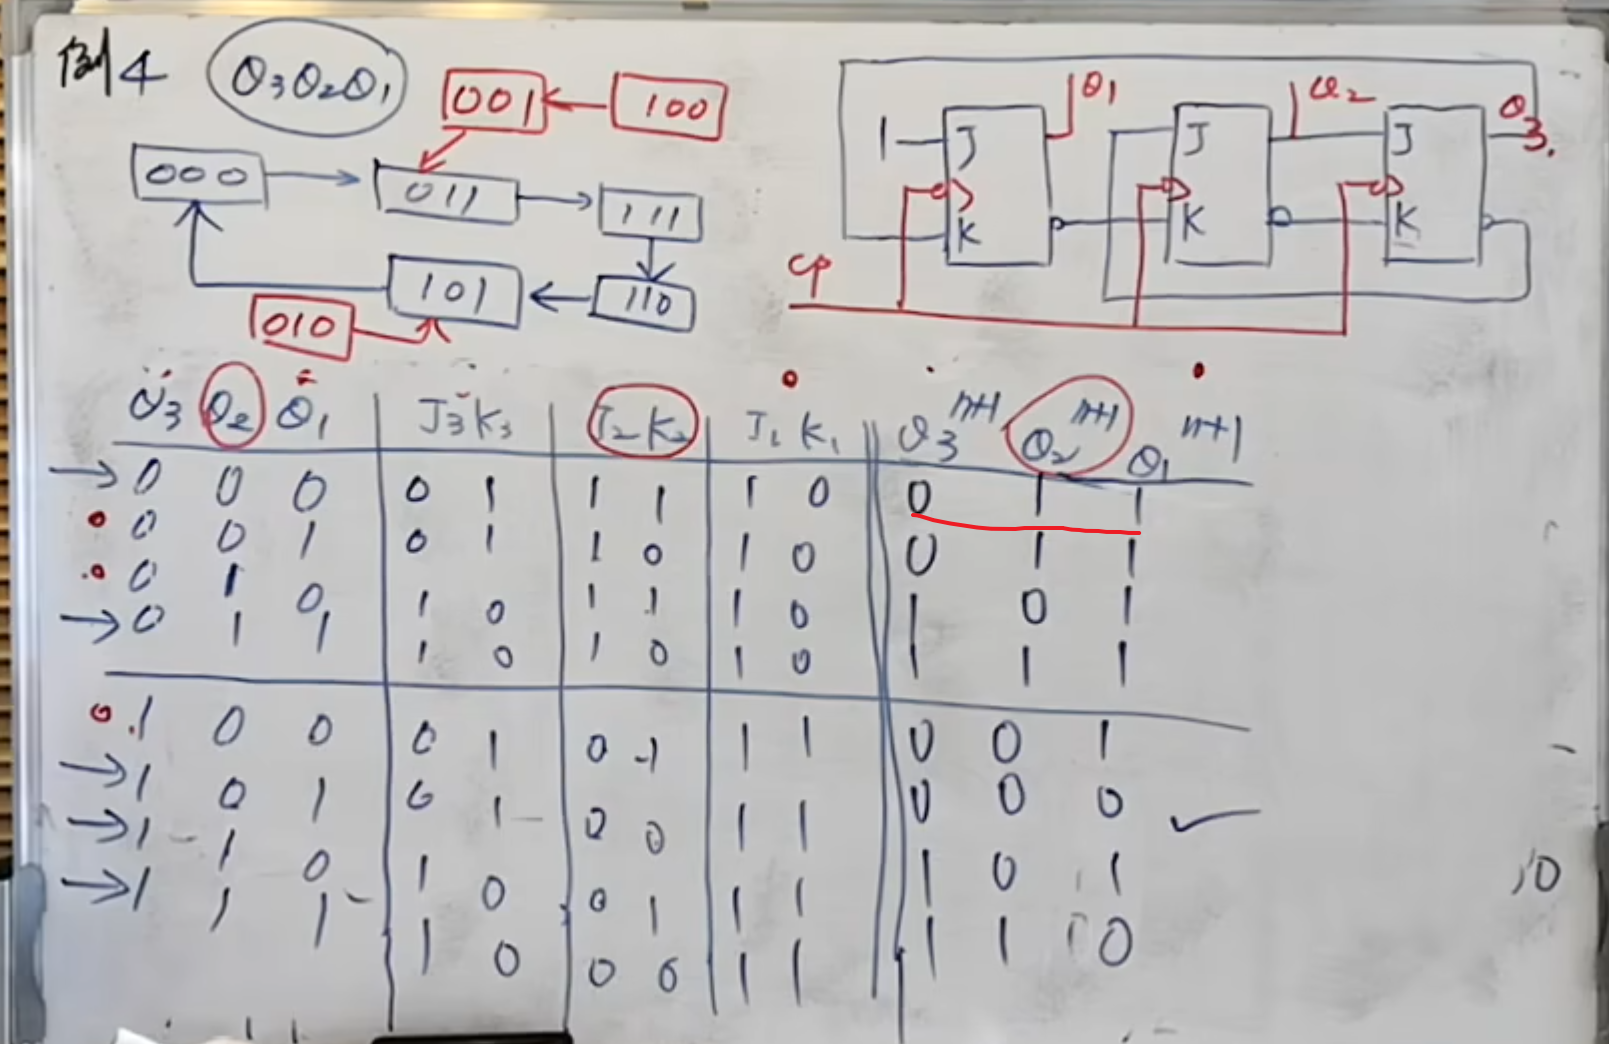 例4 Q3Q2Q1
001 100
000 011 111
101 110
010
1 J Q1 J Q2 J Q3.
K K K
CP
Q3 Q2 Q1 J3 K3 J2 K2 J1 K1 Q3^n+1 Q2^n+1 Q1^n+1
0 0 0 0 1 1 1 1 0 0 1 1
0 0 1 0 1 1 0 1 0 0 1 1
0 1 0 1 0 1 1 1 0 1 0 1
0 1 1 1 0 1 0 1 0 1 1 1
1 0 0 0 1 0 1 1 1 0 0 1
1 0 1 0 1 0 0 1 1 0 0 0
1 1 0 1 0 0 1 1 1 1 0 1
1 1 1 1 0 0 0 1 1 1 1 0